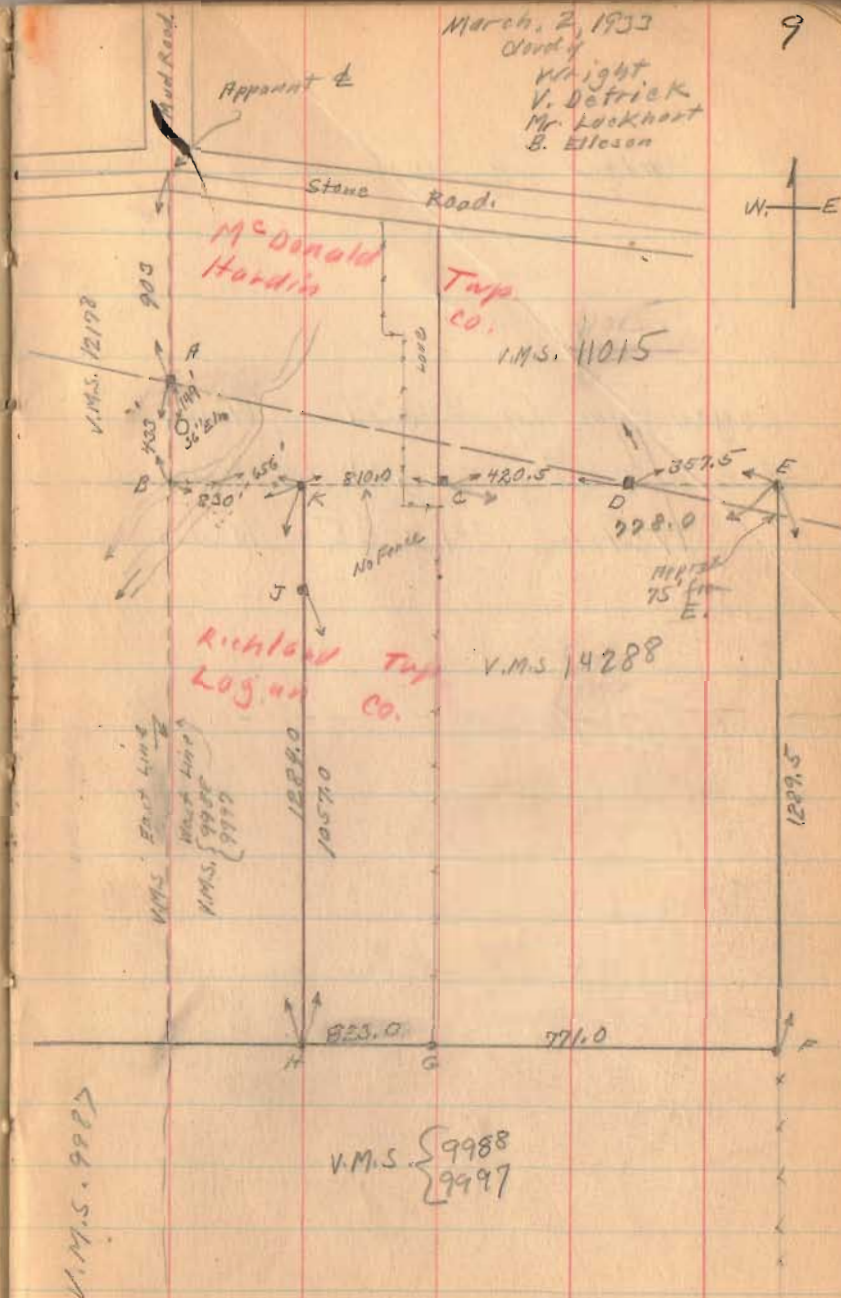 March, 2, 1933
9
Cloudy
Wright
V. Detrick
Mr. Lockhart
B. Elleson
Mud Road
Apparent ℄
Stone Road.
W. E
McDonald Twp.
Hardin Co.
903
V.M.S. 12178
V.M.S. 11015
A
149'
36" Elm
433
B
830'
656'
K
810.0
C
420.5
D
357.5
E
778.0
No Fence
75' fm
E.
J
Richland Twp
Logan Co.
V.M.S 14288
V.M.S. East Line
West Line
V.M.S. {9988
{9997
1289.0
1057.0
1289.5
H
823.0
G
771.0
F
V.M.S. {9988
{9997
V.M.S. 9987